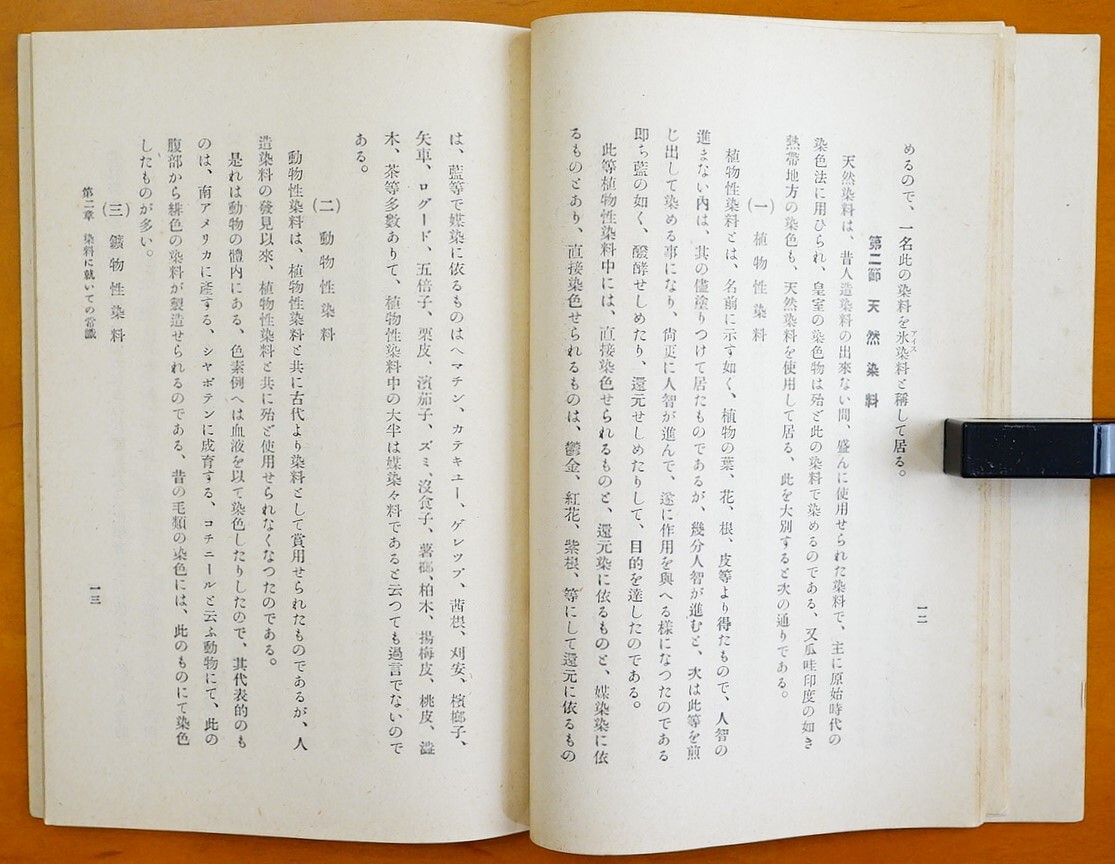 めるので、一名此の染料を氷染料と稱して居る。
アイス
第二節 天然染料
天然染料は、昔人造染料の出來ない間、盛んに使用せられた染料で、主に原始時代の
染色法に用ひられ、皇室の染色物は殆ど此の染料で染めるのである、又瓜哇印度の如き
熱帶地方の染色も、天然染料を使用して居る、此を大別すると次の通りである。
(一) 植物性染料
植物性染料とは、名前に示す如く、植物の葉、花、根、皮等より得たもので、人智の
進まない內は、其の儘塗りつけて居たものであるが、幾分人智が進むと、次は此等を煎
じ出して染める事になり、尙更に人智が進んで、遂に作用を與へる樣になつたのである
卽ち藍の如く、醱酵せしめたり、還元せしめたりして、目的を達したのである。
此等植物性染料中には、直接染色せられるものと、還元染に依るものと、媒染染に依
るものとあり、直接染色せられるものは、鬱金、紅花、紫根、等にして還元に依るもの
一二
は、藍等で媒染に依るものはヘマチン、カテキユー、ゲレツプ、茜根、刈安、檳榔子、
矢車、ログード、五倍子、栗皮、濱茄子、ズミ、沒食子、薯榔、柏木、揚梅皮、桃皮、澁
木、茶等多數ありて、植物性染料中の大半は媒染々料であると云つても過言でないので
ある。
(二) 動物性染料
動物性染料は、植物性染料と共に古代より染料として賞用せられたものであるが、人
造染料の發見以來、植物性染料と共に殆ど使用せられなくなつたのである。
是れは動物の體內にある、色素例へは血液を以て染色したりしたので、其代表的のも
のは、南アメリカに產する、シヤボテンに成育する、コチニールと云ふ動物にて、此の
腹部から緋色の染料が製造せられるのである、昔の毛類の染色には、此のものにて染色
したものが多い。
(三) 鑛物性染料
第二章 染料に就いての常識
一三